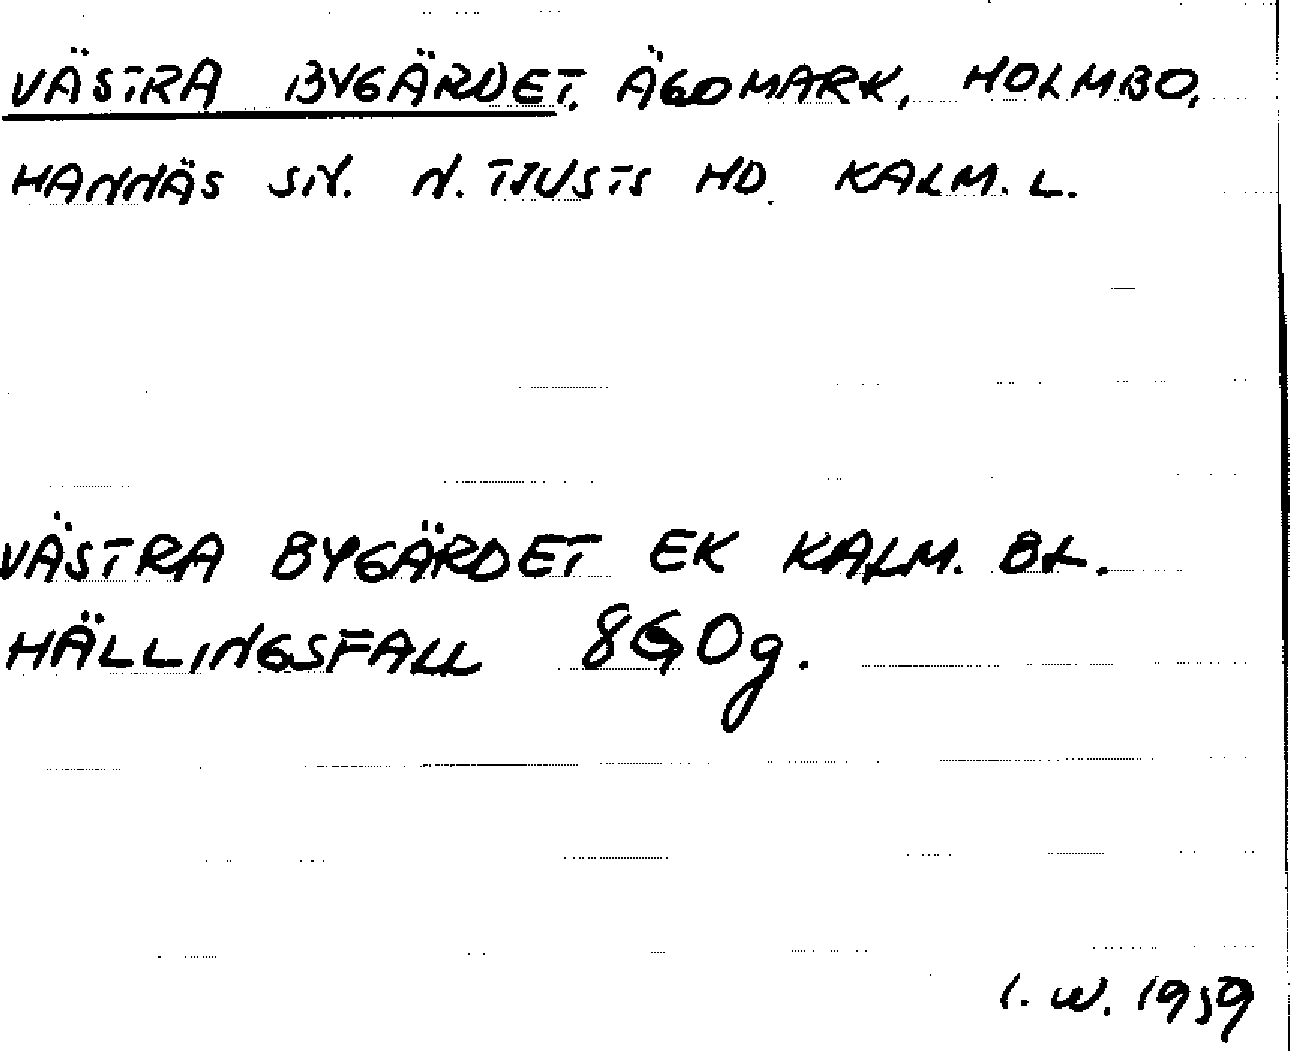 VÄSTRA BYGÄRDET, ÄGOMARK, HOLMBO,
HANNÄS SN. N. TJUSTS HD. KALM. L.
VÄSTRA BYGÄRDET EK KALM. BL.
HÄLLINGSFALL 8G0g.
I. W. 1959